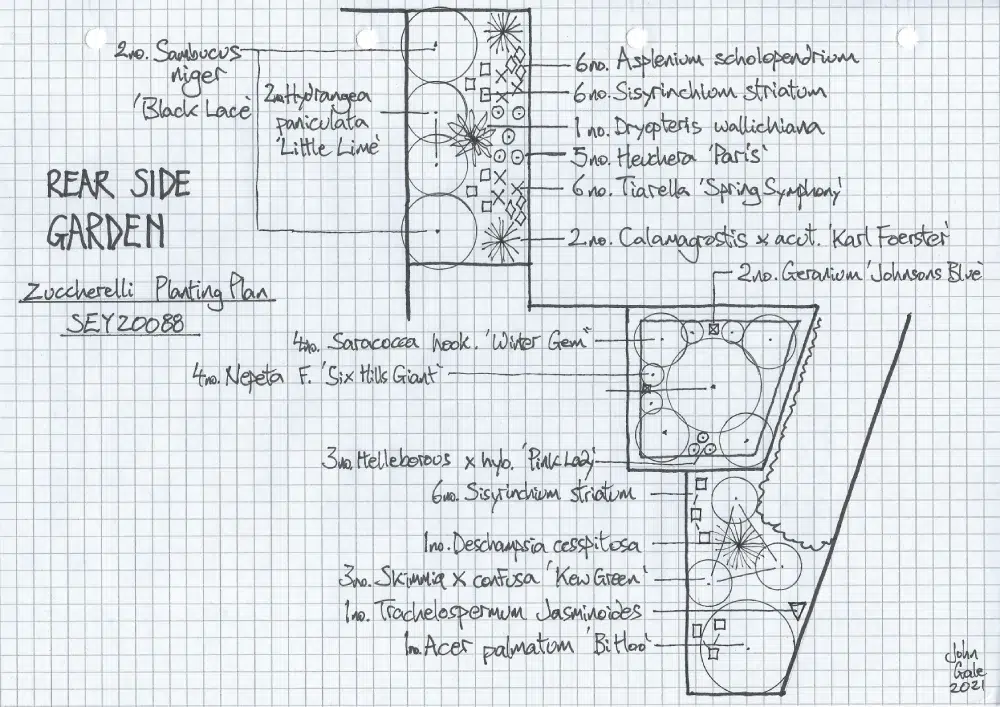 2no. Sambucus
niger
'Black Lace'
2no. Hydrangea
paniculata
'Little Lime'
6no. Asplenium scholopendrium
6no. Sisyrinchium striatum
1no. Dryopteris wallichiana
5no. Heuchera 'Paris'
6no. Tiarella 'Spring Symphony'
2no. Calamagrostis x acut. 'Karl Foerster'
REAR SIDE
GARDEN
Zuccherelli Planting Plan
SEY20088
2no. Geranium 'Johnsons Blue'
4no. Saracocca hook. 'Winter Gem'
4no. Nepeta F. 'Six Hills Giant'
3no. Helleborous x hyb. 'Pink Lady'
6no. Sisyrinchium striatum
1no. Deschampsia cesspitosa
3no. Skimmia x confusa 'Kew Green'
1no. Trachelospermum Jasminoides
1no. Acer palmatum 'Bi Hoo'
John
Gale
2021